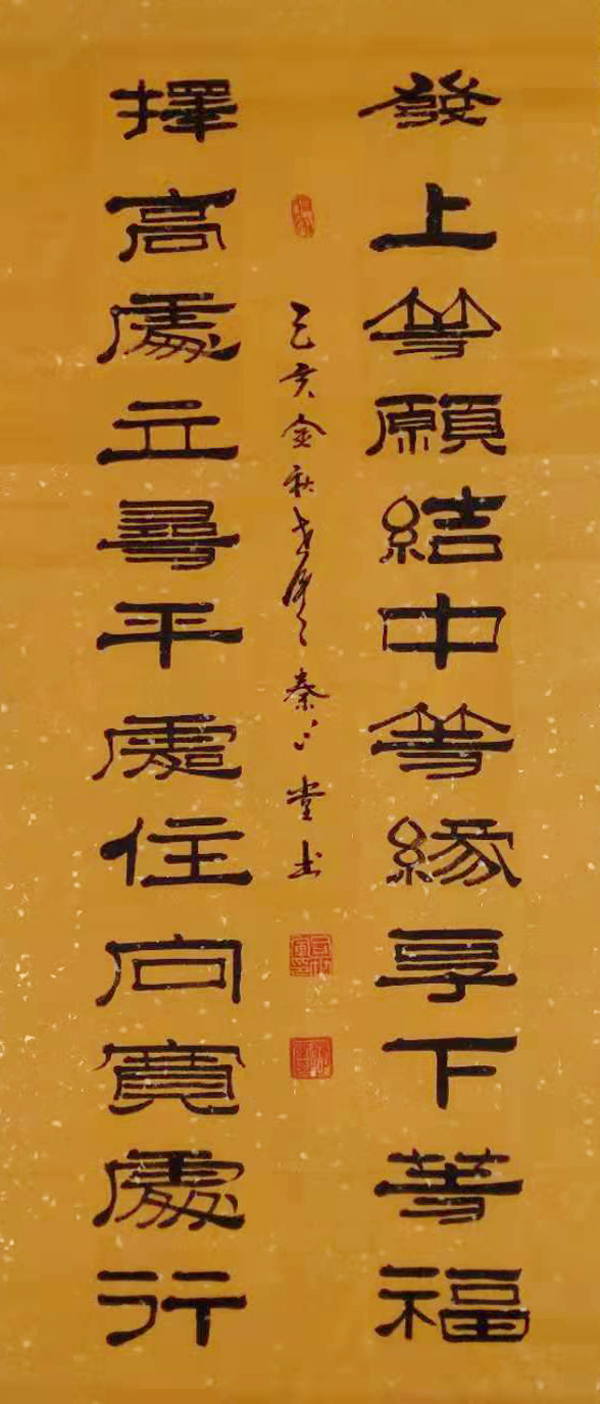 發上等願結中等緣享下等福
擇高處立尋平處住向寬處行
己亥金秋 秦 堂書